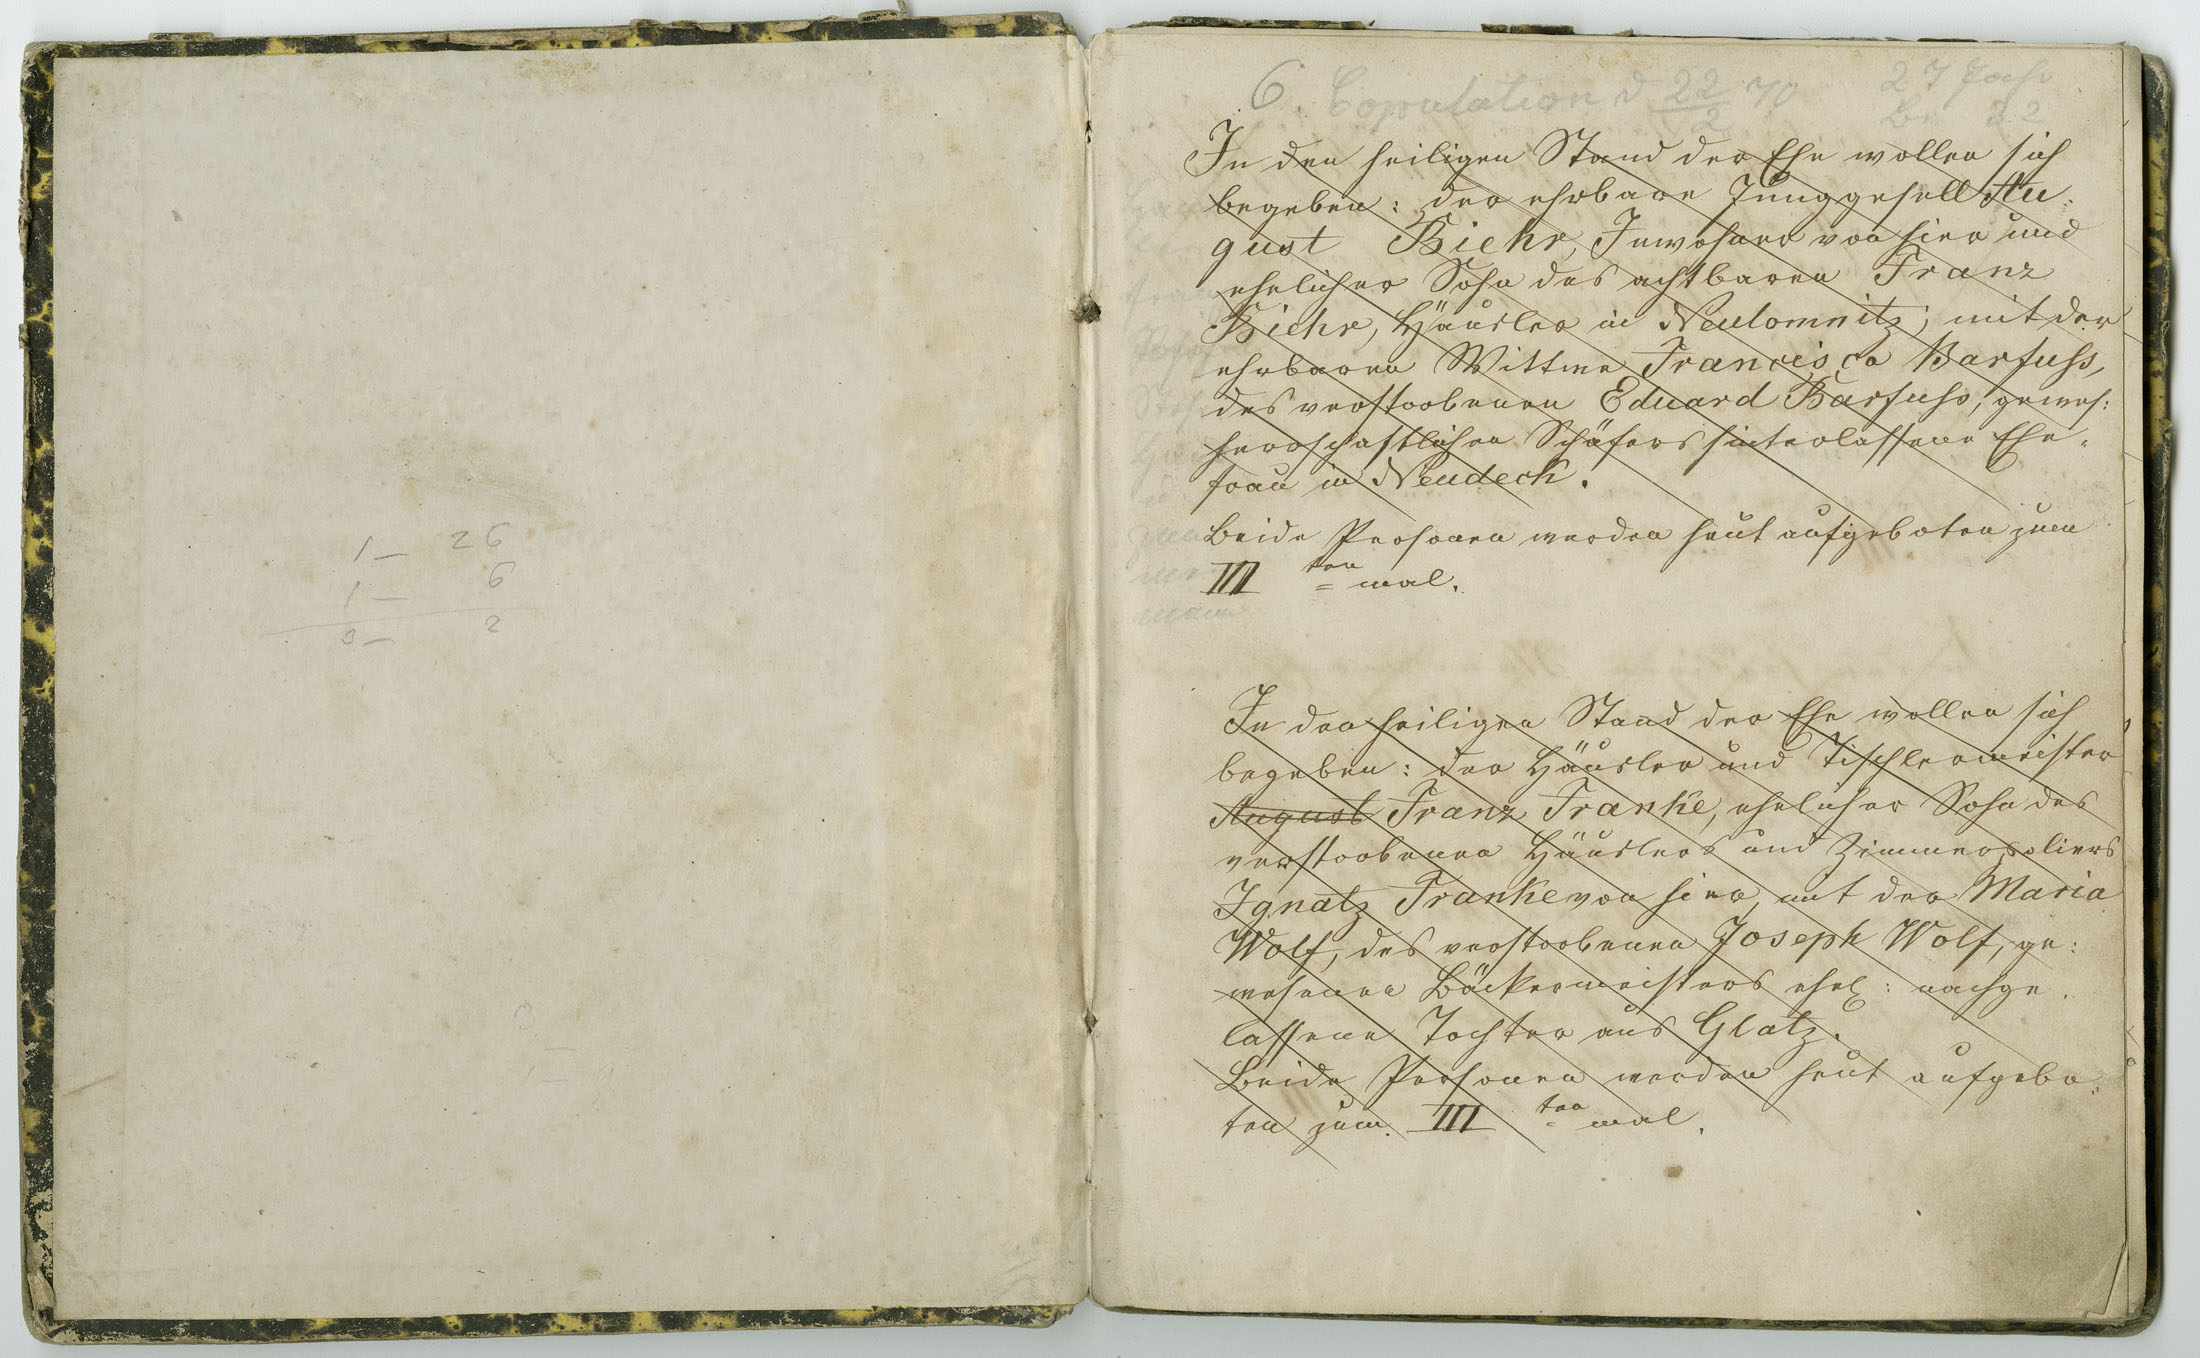 1 – 26
1 – 6
3 – 2
6. Copulation d 22/2 70 27 Jahr
Br 32
In den heiligen Stand der Ehe wollen sich
begeben: der ehrbare Junggesell Au-
gust Biehr, Inwohner von hier und
ehelicher Sohn des achtbaren Franz
Biehr, Häusler in Neulomnitz; mit der
ehrbaren Wittwe Francisca Barfuss,
des verstorbenen Eduard Barfuss, gewes:
herrschaftlichen Schäfers hinterlassene Ehe-
frau in Neudeck.
Beide Personen werden heut aufgeboten zum
III ten mal.
In den heiligen Stand der Ehe wollen sich
begeben: der Häusler und Tischlermeister
August Franz Franke, ehelicher Sohn des
verstorbenen Häuslers und Zimmerpoliers
Ignatz Franke von hier, mit der Maria
Wolf, des verstorbenen Joseph Wolf, ge:
wesenen Bäckermeisters ehel: nachge-
lassene Tochter aus Glatz.
Beide Personen werden heut aufgebo:
ten zum III ten mal.